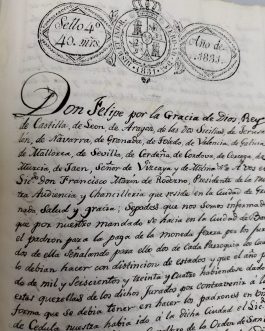 Sello 4º
40. mrs.
Año de
1831.
1831
Don Felipe por la Gracia de Dios Rey
de Castilla, de Leon, de Aragon, de las Dos Sicilias de Jerusa
len, de Navarra, de Granada, de Toledo, de Valencia, de Galicia
de Mallorca, de Sevilla, de Cerdeña, de Cordova, de Corcega, de
Murcia, de Jaen, Señor de Vizcaya y de Molina &ª A vos el
Licdo Don Francisco Marin de Rodezno, Presidente de la
Audiencia, y Chancilleria que reside en la Ciudad de Gra
nada, Salud y gracia; Sepades que nos somos informado
que por nuestro mandado se hacia en la Ciudad de
el padron para la paga de la moneda forera por los
dos de ella Señalando para ello dos de cada Parroquia los
lo debian hacer con distincion de estados y que el año
de mil y Seiscientos y treinta y Cuatro habiendose dado
estas querellas de los dichos Jurados por contravenir a la
forma que se debia tener en hacer los padrones en
de Cedula nuestra habia ido á la Dicha Ciudad el
de la Orden de San